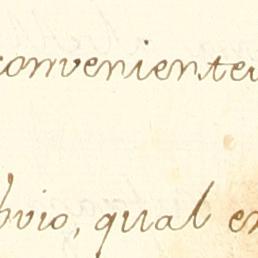 convenientem
bvio, qual e